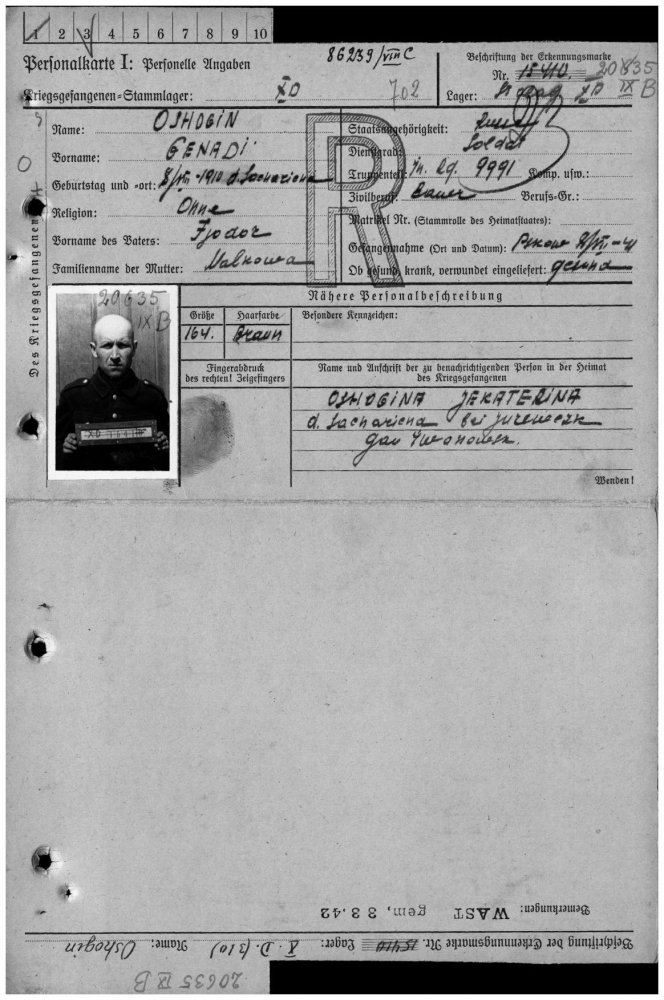 1 2 3 4 5 6 7 8 9 10
Personalkarte I: Personelle Angaben
86239/VIII C
Beschriftung der Erkennungsmarke
Nr. 15410. 20635
Kriegsgefangenen-Stammlager: XD 702
Lager: Stalag XD IX B
Des Kriegsgefangenen
Name: OSHOGIN
Vorname: GENADI
Geburtstag und -ort: 8/VII 1910 d. Sacharicha
Religion: Ohne
Vorname des Vaters: Fjodor
Familienname der Mutter: Malkowa
R
Staatsangehörigkeit: Russe
Dienstgrad: Soldat
Truppenteil: In. Rg. 9991 Komp. usw.:
Zivilberuf: Bauer Berufs-Gr.:
Matrikel Nr. (Stammrolle des Heimatstaates):
Gefangennahme (Ort und Datum): Pskow 8/VII-41
Ob gesund, krank, verwundet eingeliefert: gesund
20635
IX B
XD
Nähere Personalbeschreibung
Größe Haarfarbe Besondere Kennzeichen:
164. Braun
Fingerabdruck
des rechten! Zeigefingers
Name und Anschrift der zu benachrichtigenden Person in der Heimat
des Kriegsgefangenen
OSHOGINA JEKATERINA
d. Sacharicha bei Jurewezk
Gau Iwanowsk.
Wenden!
Bemerkungen: WAST gem, 3 3.42
Beschriftung der Erkennungsmarke Nr. 15410 Lager: X. D. (310) Name: Oshogin
20635 IX B